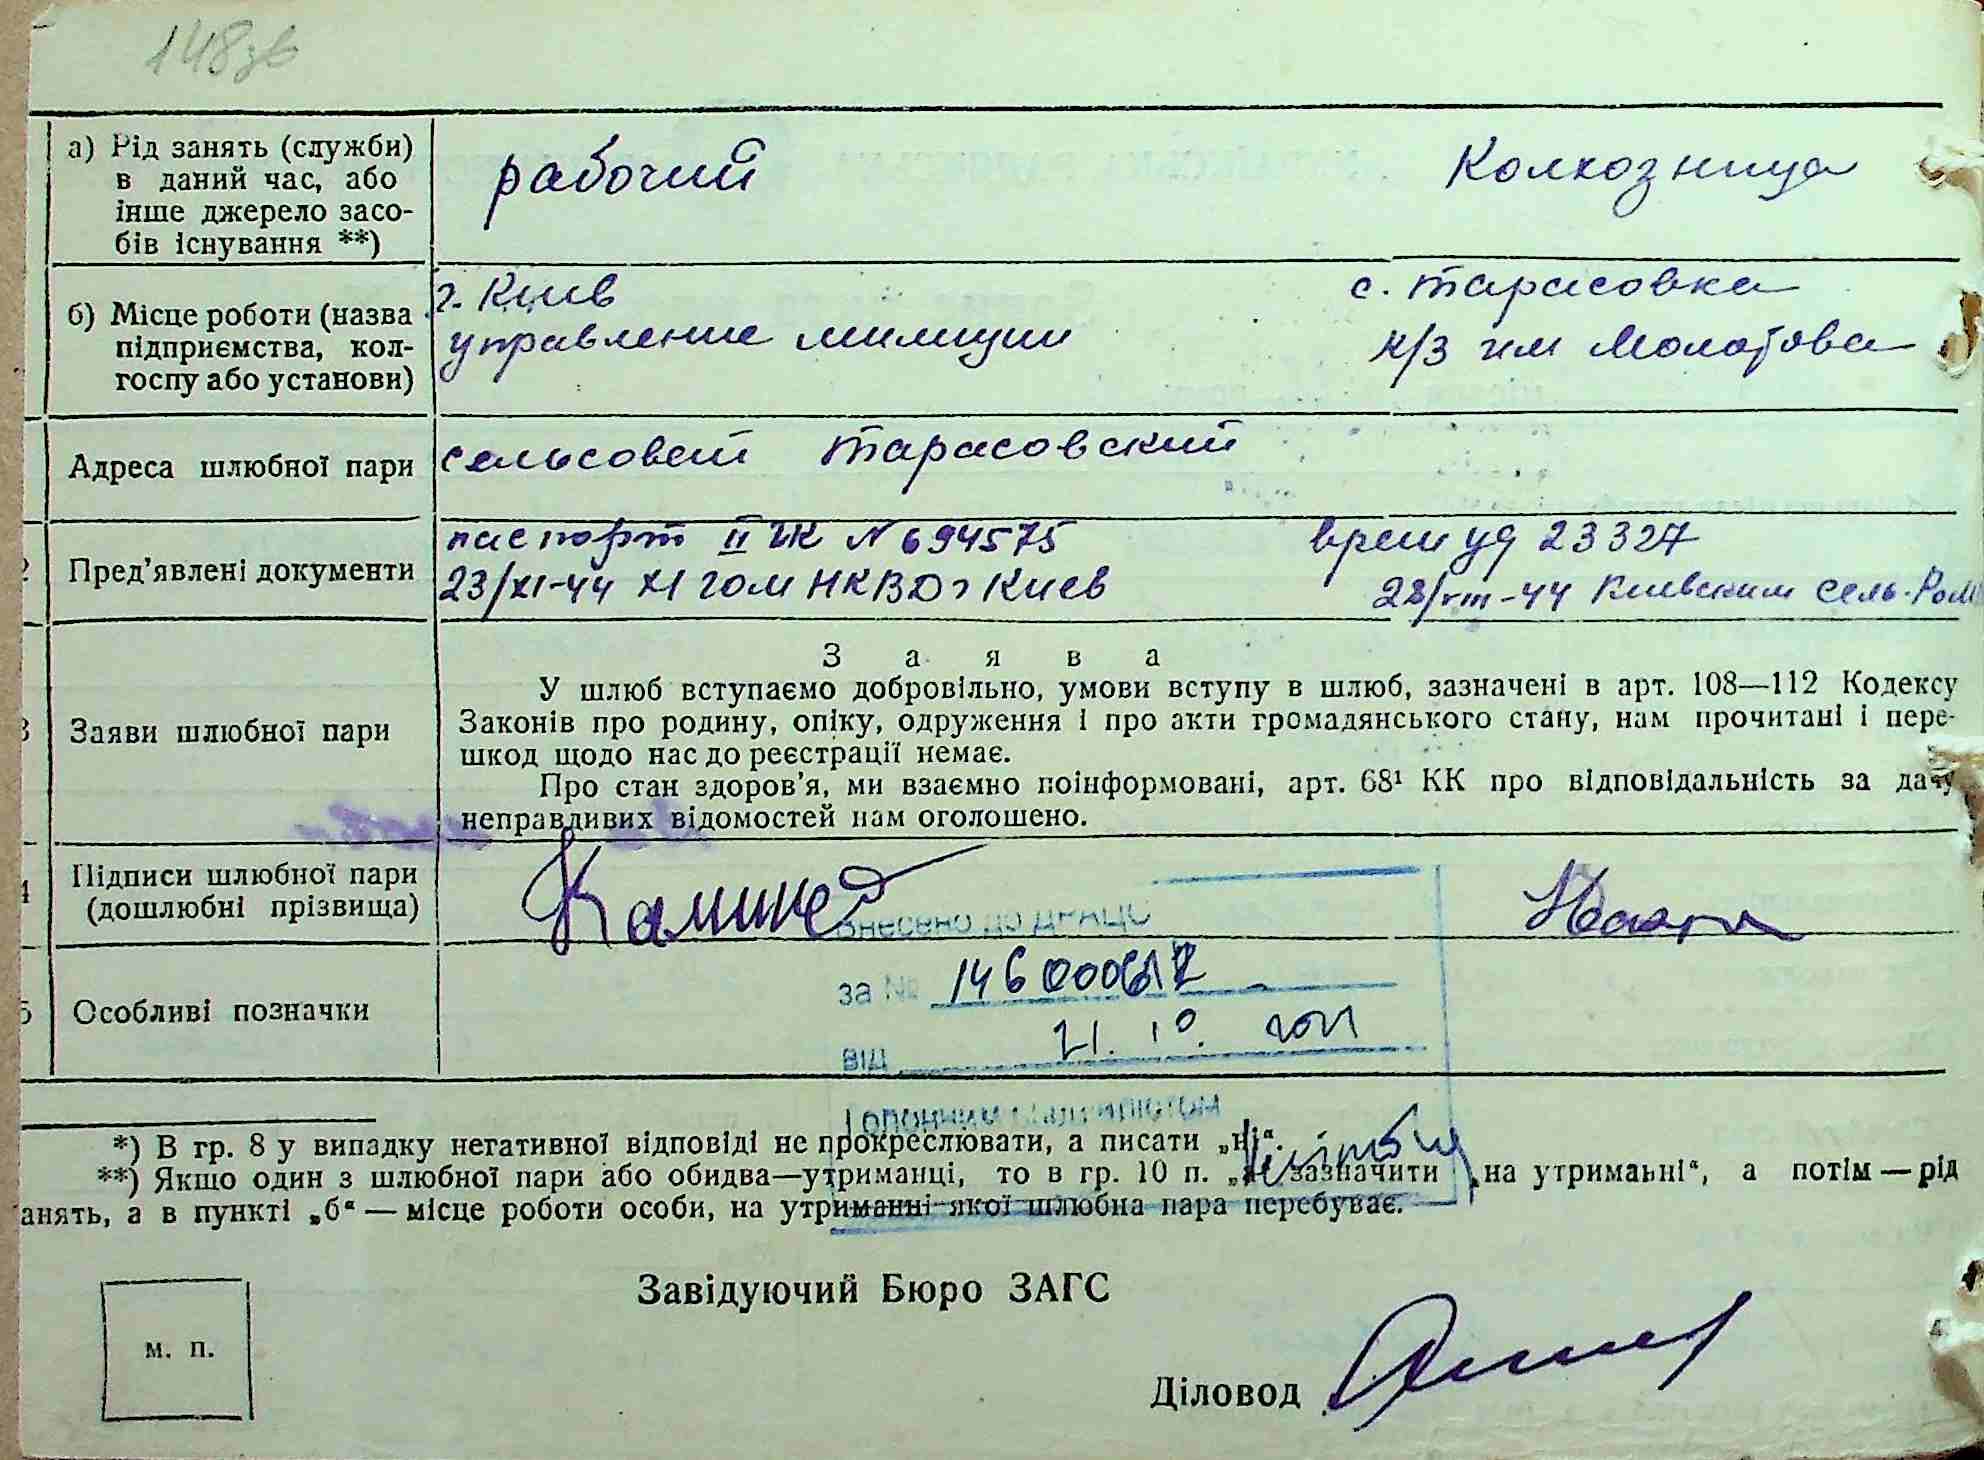 148зв
а) Рід занять (служби)
в даний час, або
інше джерело засо-
бів існування **)
рабочий
Колхозница
б) Місце роботи (назва
підприємства, кол-
госпу або установи)
г. Киев
управление милиции
с. Тарасовка
к/з им Молотова
Адреса шлюбної пари
сельсовет Тарасовский
Пред’явлені документи
паспорт II ЧК N 694575
23/XI-44 XI гом НКВД г Киев
врем уд 23327
28/VIII-44 Киевским Сель. РОМ
Заяви шлюбної пари
З а я в а
У шлюб вступаємо добровільно, умови вступу в шлюб, зазначені в арт. 108—112 Кодексу
Законів про родину, опіку, одруження і про акти громадянського стану, нам прочитані і пере-
шкод щодо нас до реєстрації немає.
Про стан здоров’я, ми взаємно поінформовані, арт. 68¹ КК про відповідальність за дачу
неправдивих відомостей нам оголошено.
Підписи шлюбної пари
(дошлюбні прізвища)
Внесено до ДРАЦС
за №
від 21. 10. 2021
Особливі позначки
*) В гр. 8 у випадку негативної відповіді не прокреслювати, а писати „ні“.
**) Якщо один з шлюбної пари або обидва—утриманці, то в гр. 10 п. зазначити „на утриманні“, а потім — рід
анять, а в пункті „б“ — місце роботи особи, на утриманні якої шлюбна пара перебуває.
Завідуючий Бюро ЗАГС
м. п.
Діловод